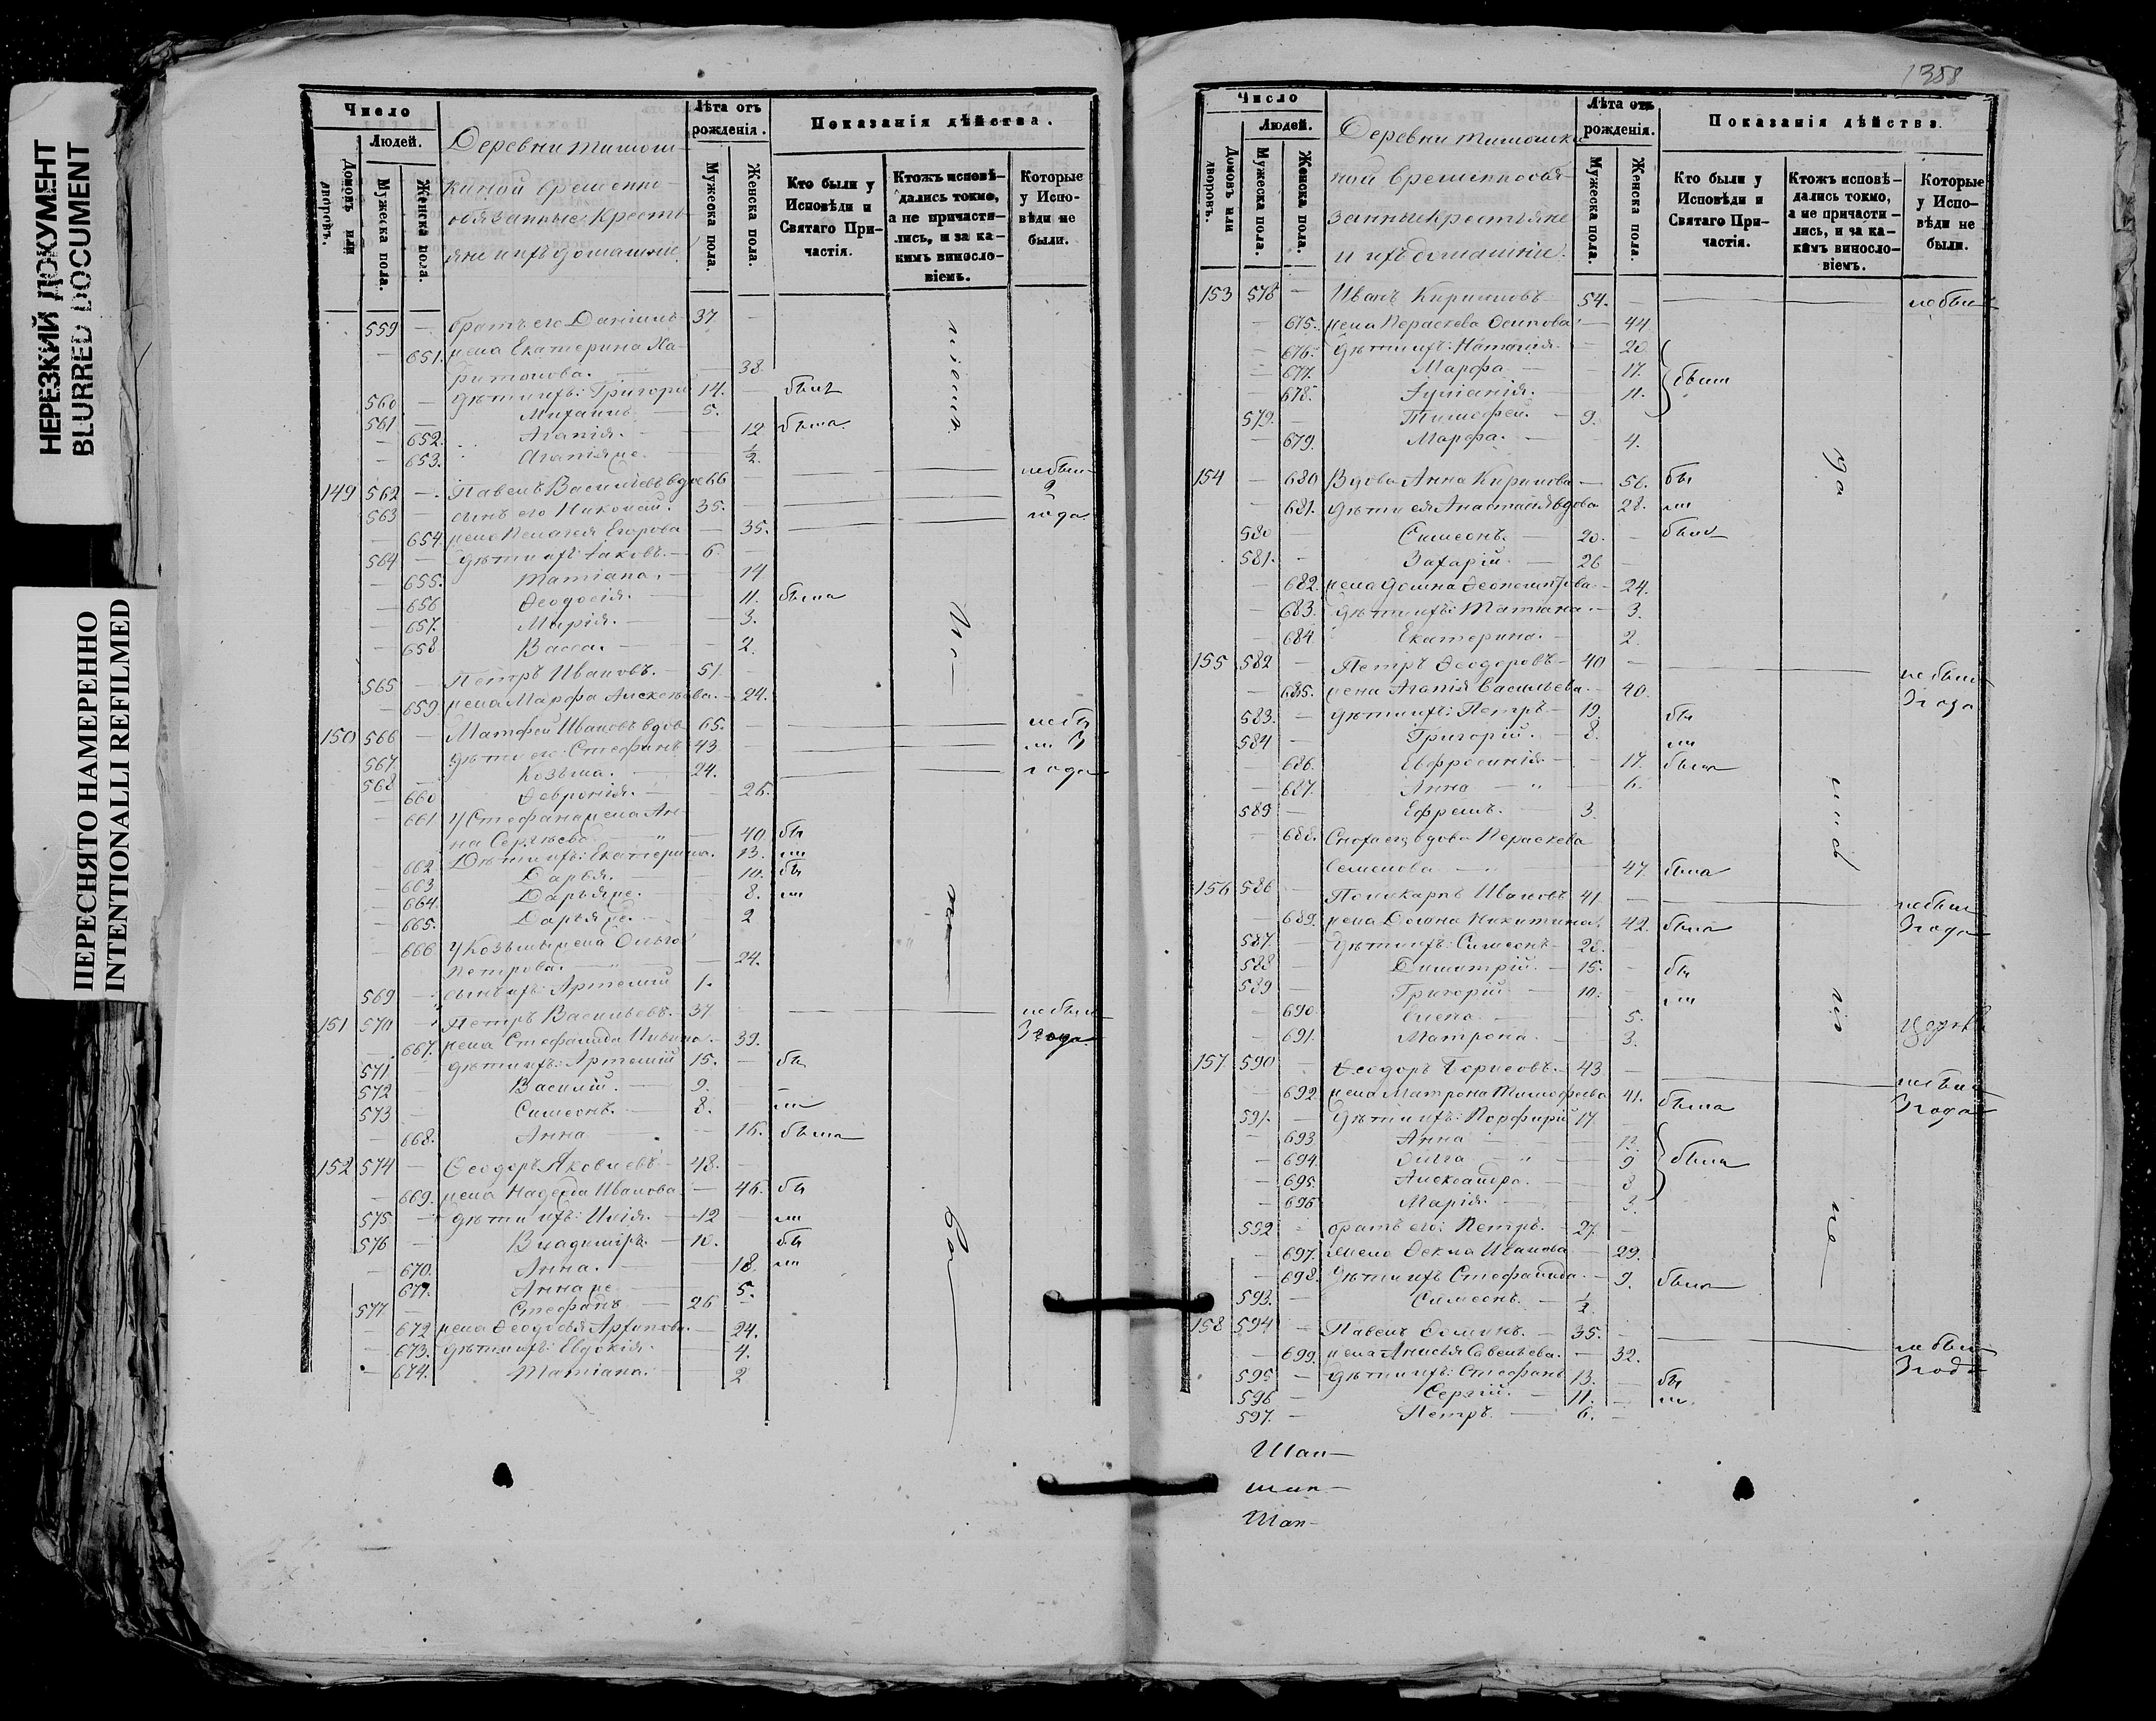 НЕРЕЗКИЙ ДОКУМЕНТ
BLURRED DOCUMENT
ПЕРЕСНЯТО НАМЕРЕННО
INTENTIONALLI REFILMED
Число
Людей.
Домовъ или дворовъ.
Мужеска пола.
Женска пола.
Деревни тимош-
киной временно-
обязанные Кресть-
яне и ихъ домашніе.
Лѣта отъ рожденія.
Мужеска пола.
Женска пола.
Показанія дѣйства.
Кто были у Исповѣди и Святаго При-частія.
Ктожъ исповѣ-дались токмо, а не причасти-лись, и за ка-кимъ виносло-віемъ.
Которые у Испо-вѣди не были.
559 — братъ его Даніилъ 37 —
— 651. жена Екатерина Ха-
ритонова. — 38.
560 — дѣти ихъ: Григорій 14. былъ
561 — Михаилъ 5.
— 652. Агапія. — 12 была
— 653. Агапія же. — 1/2.
149 562 — Павелъ Васильевъ вдов 66 — небыли
563 — сынъ его Николай. 35. — 2 года
— 654 жена Пелагея Егорова — 35.
564 — дѣти ихъ: Іаковъ. — 6. —
— 655. Татіана. — 14
— 656 Ѳеодосія. — 11. была
— 657. Марія. — 3.
— 658 Васса. — 2.
565 — Петръ Ивановъ. — 51 —
— 659 жена Марфа Алексѣева. — 24.
150 566 — Матфей Ивановъ вдов 65. — небы
567 дѣти его: Стефанъ 43 — ли 3
568 — Козьма. — 24. года
— 660 Ѳевронія. — 26.
— 661 У Стефана жена Ан-
на Сергѣева — 40. бы
662. Дѣти ихъ: Екатерина. 13. ли
— 663 Дарья. — 10. бы
— 664. Дарья же. — 8. ли
— 665. Дарья же. — 2
— 666 У Козьмы жена Ольга
Петрова. — 24.
569 — сынъ ихъ: Артемій 1.
151 570 — Петръ Васильевъ. — 37 — небыли
— 667. жена Стефанида Ильина. — 39. 3 года
571 дѣти ихъ: Артемій 15. — бы
572 — Василій. — 9. —
573 — Симеонъ. — 8. ли
— 668. Анна — 16. была
152 574 — Ѳеодоръ Яковлевъ — 48. —
— 669. жена Надежда Иванова — 46. бы
575 — дѣти ихъ: Илія. — 12 — ли
576 — Владиміръ — 10. бы
— 670. Анна. — 18. ли
— 671. Анна же — 5.
577 — Стефанъ — 26 —
— 672 жена Ѳеодосья Архипова. — 24.
— 673. дѣти ихъ: Евдокія. — 4.
— 674. Татіана. — 2
1358
Число
Людей.
Домовъ или дворовъ.
Мужеска пола.
Женска пола.
Деревни тимошки-
ной временнообя-
занные Крестьяне
и ихъ домашніе.
Лѣта отъ рожденія.
Мужеска пола.
Женска пола.
Показанія дѣйства.
Кто были у Исповѣди и Святаго При-частія.
Ктожъ исповѣ-дались токмо, а не причасти-лись, и за ка-кимъ винословіемъ.
Которые у Испо-вѣди не были.
153 578 — Иванъ Кириловъ 54. — небыли
— 675. жена Пераскева Осипова — 44
— 676. дѣти ихъ: Наталія — 20.
— 677. Марфа — 17. были
— 678. Іуліанія. — 11.
579. — Тимофей. — 9.
— 679. Марфа. — 4.
154 — 680 Вдова Анна Кирилова — 56. бы
— 681. дѣти ея Анастасія вдова 28. ли
580 — Симеонъ. — 20. — былъ
581. — Захарій. — 26
— 682. жена Домна — 24.
— 683. дѣти ихъ: Татіана. — 3.
— 684 Екатерина. — 2.
155 582 — Петръ Ѳеодоровъ — 40 — небыли
— 685. жена Агапія Васильева. — 40. 3 года
583. — дѣти ихъ: Петръ — 19. бы
584 — Григорій. — 8. ли
— 686. Евфросинія — 17. была
— 687. Анна — 6.
589 — Ефремъ. — 3.
— 688. Сноха его вдова Пераскева
Семенова — 47. была
156 586 — Поликарпъ Ивановъ 41 — небыли
— 689. жена Домна Никитина. 42. была 3 года
587. — дѣти ихъ: Симеонъ — 20. —
588 — Димитрій. — 15. — бы
589 — Григорій — 10. ли
— 690 Елена. — 5.
— 691. Матрона. — 3.
157 590 — Ѳеодоръ Борисовъ. — 43 — небыли
— 692 жена Матрона Тимофеева 41. была 3 года
591. — дѣти ихъ: Порфирій 17
— 693 Анна — 12.
— 694. Ольга — 9 была
— 695. Александра. — 8
— 696 Марія. — 3.
592 — братъ его: Петръ. — 27. —
— 697. жена Ѳекла Иванова — 29.
— 698. дѣти ихъ Стефанида. — 9. была
593. — Симеонъ. — 1/2.
158 594 — Павелъ — 35. — небыли
— 699. жена Анисья Савельева. — 32. 3 года
595 — дѣти ихъ: Стефанъ 13. — бы
596 — Сергій. — 11. — ли
597. — Петръ. — 6. —
Шап—
шап—
Шап—